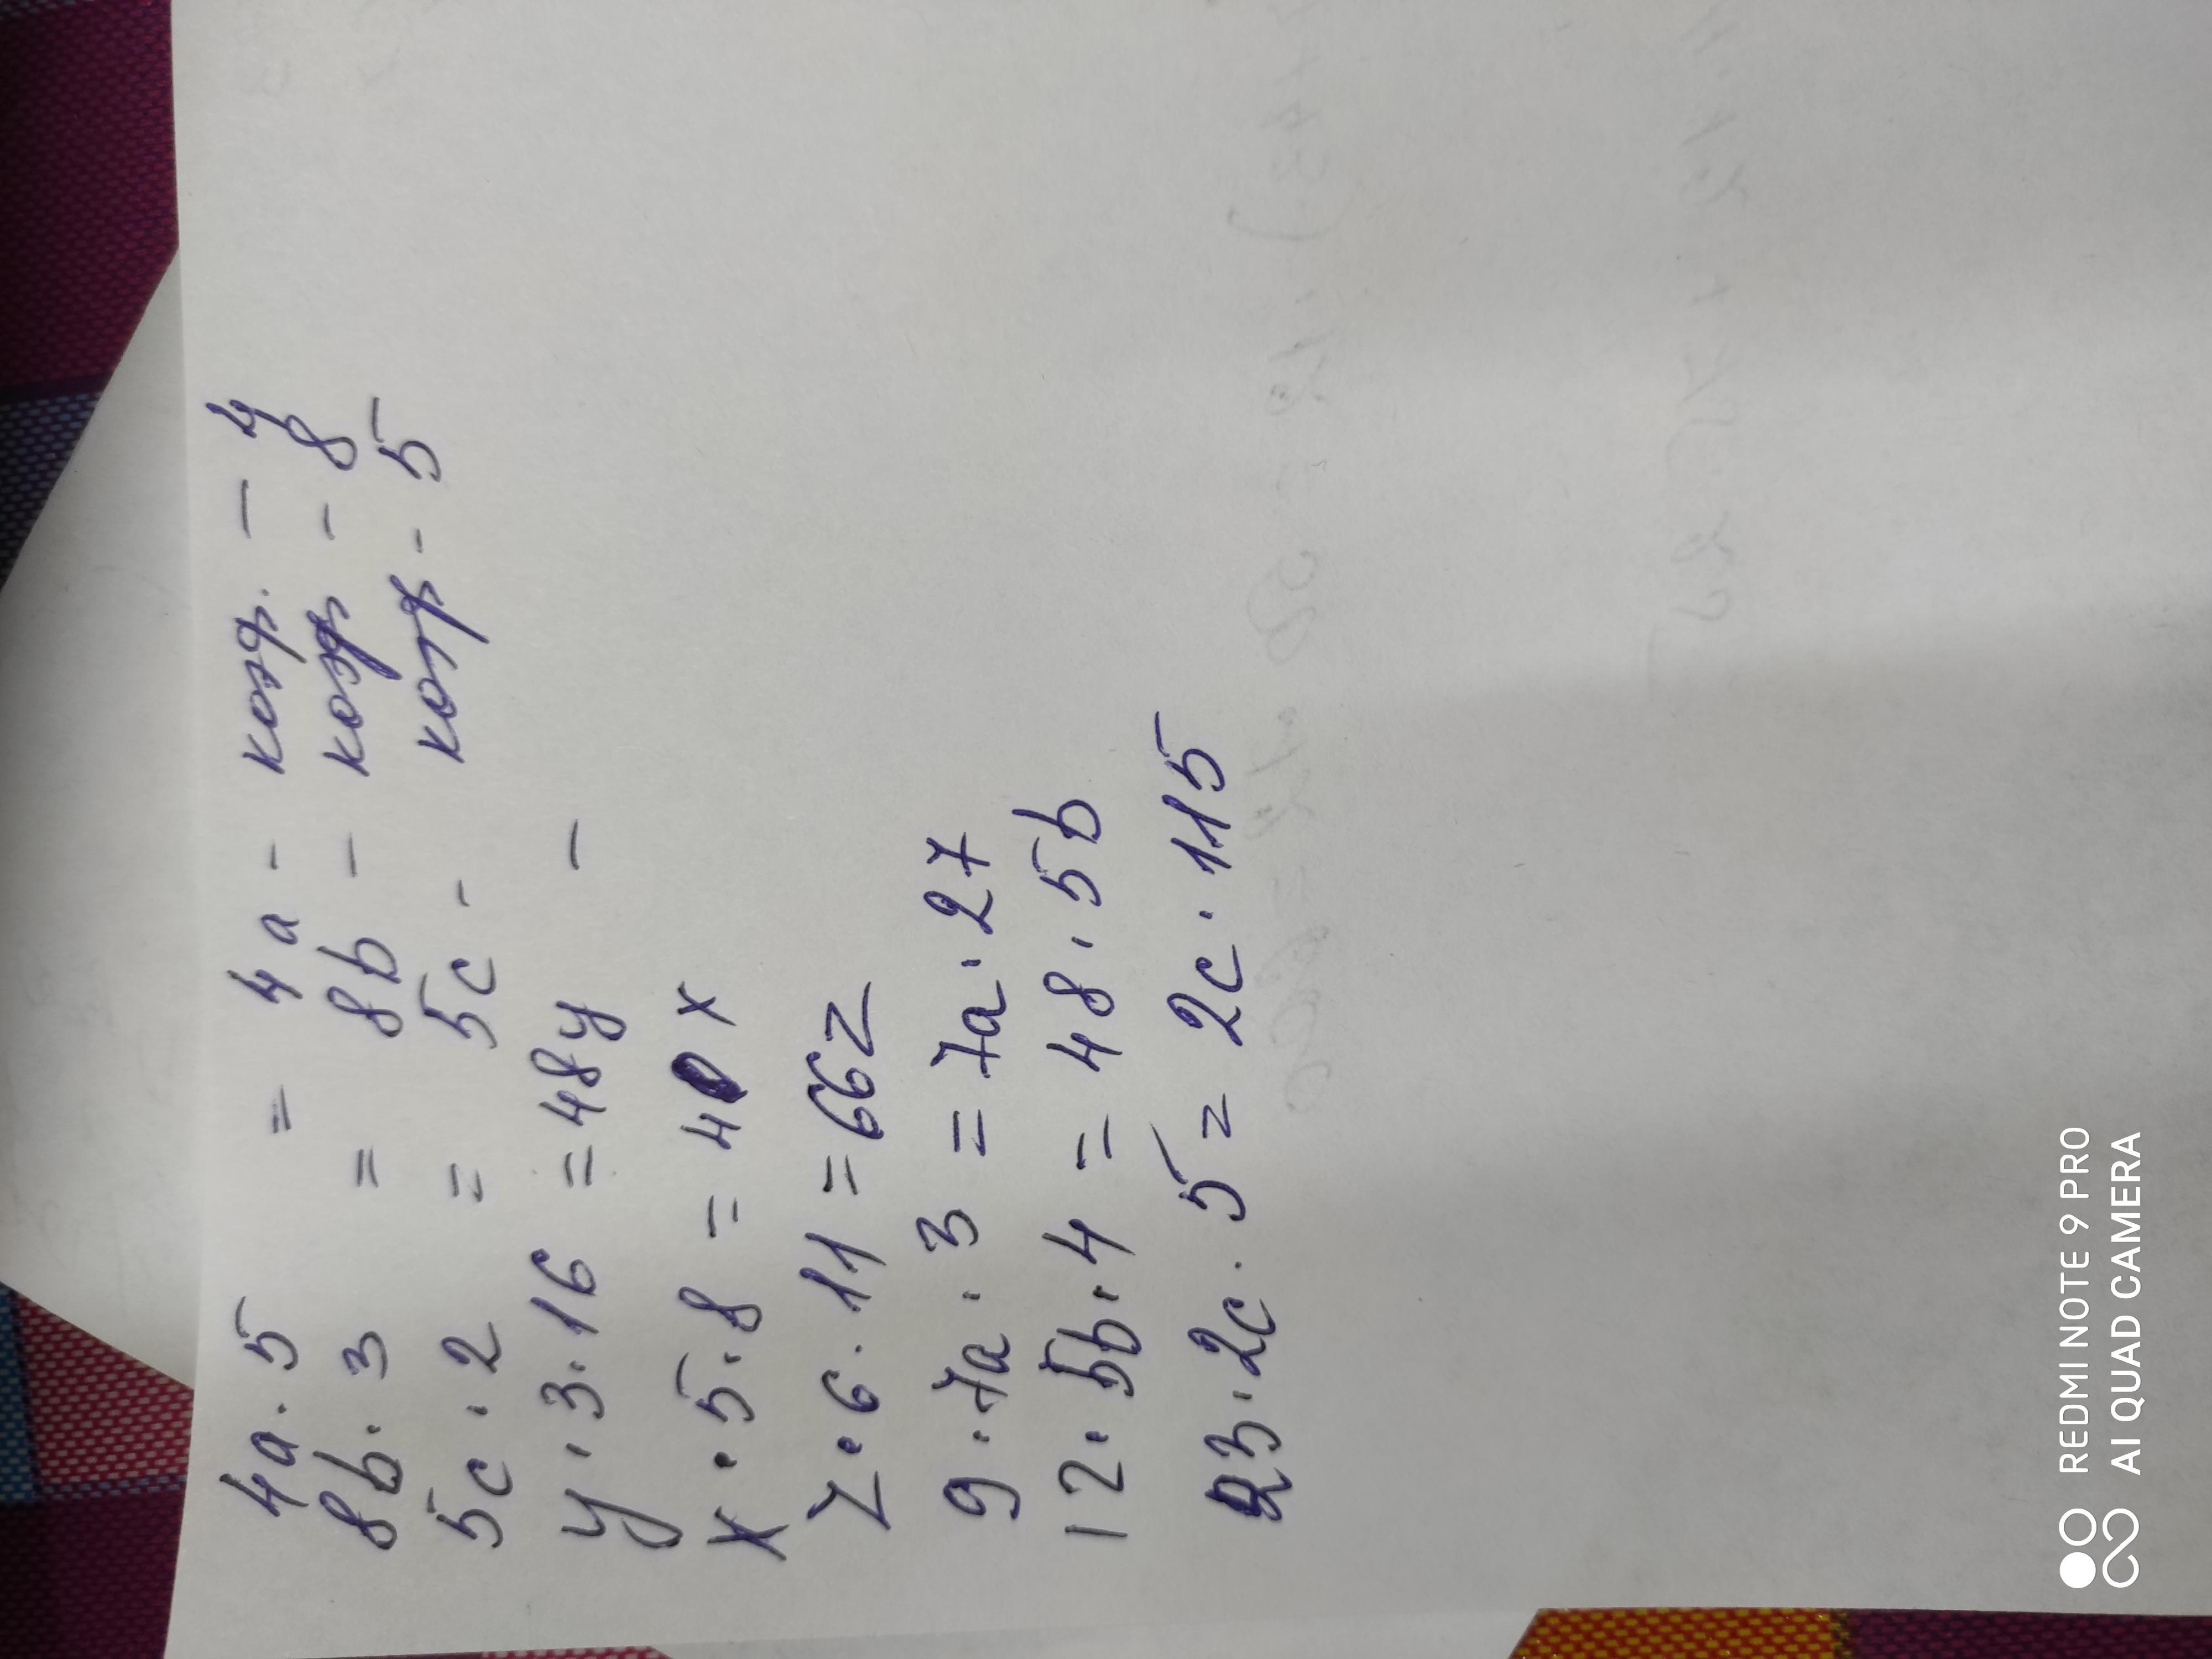 4a · 5 = 4a - коэф. - 4
8b · 3 = 8b - коэф - 8
5c · 2 = 5c - коэф - 5
y · 3 · 16 = 48y -
x · 5 · 8 = 40x
z · 6 · 11 = 66z
9 · 7a · 3 = 7a · 27
12 · 5b · 4 = 48 · 5b
23 · 2c · 5 = 2c · 115
REDMI NOTE 9 PRO
AI QUAD CAMERA